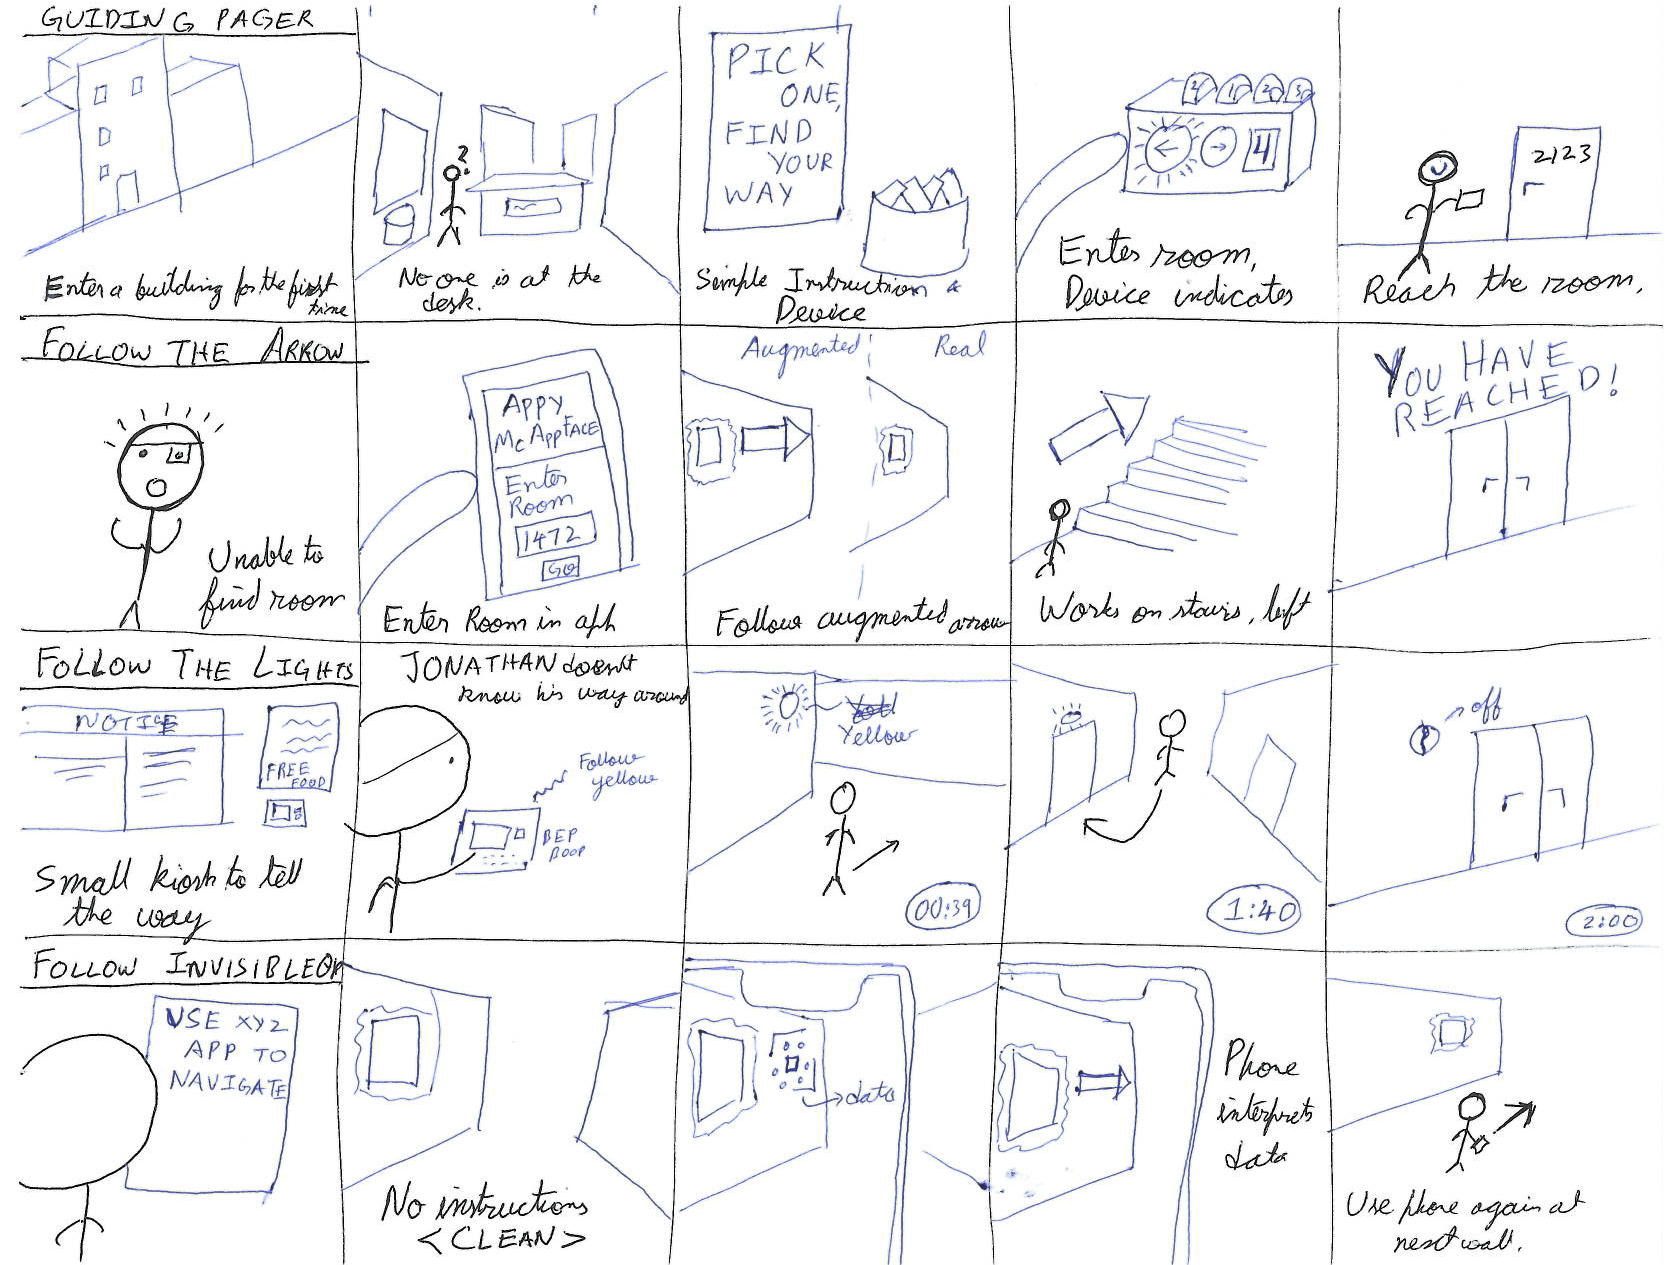 GUIDING PAGER
Enter a building for the first
time
?
No one is at the
desk.
PICK
ONE,
FIND
YOUR
WAY
Simple Instruction &
Device
← → 4
Enter room,
Device indicates
2123
Reach the room.
FOLLOW THE ARROW
Unable to
find room
APPY
McAPPFACE
Enter
Room
1472
GO
Enter Room in app
Augmented Real
Follow augmented arrow
Works on stairs, left
YOU HAVE
REACHED!
FOLLOW THE LIGHTS
NOTICE
FREE
FOOD
Small kiosk to tell
the way
JONATHAN doesn't
know his way around
Follow
yellow
BEP
BOOP
Yellow
00:39
1:40
off
2:00
FOLLOW INVISIBLEQR
USE XYZ
APP TO
NAVIGATE
No instructions
<CLEAN>
data
Phone
interprets
data
Use phone again at
next wall.